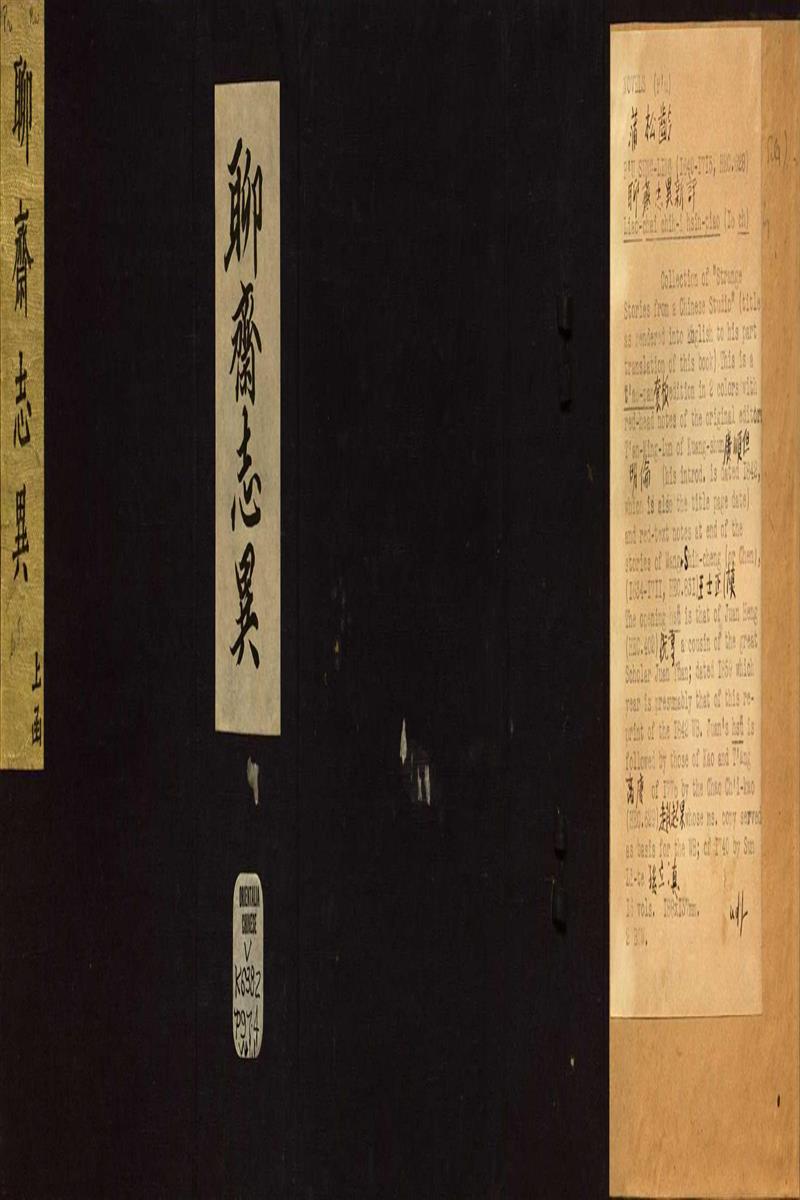 聊齋志異
上函
聊齋志異
ORIENTALIA
CHINESE
V
K6982
P974
NOVELS
蒲松齡
聊齋志異新評
Liao-chai chih-i hsin-
Collection of "Strange
Stories from a Chinese Studio" (title
as rendered into English to his part
translation of this book) This is a
t'ao-pan套板edition in 2 colors with
red-head notes of the original editor
T'an-Ming-lun of Kuang-shun廣順但
明倫 (his introd. is dated 1842,
which is also the title page date)
and red-text notes at end of the
stories of Wang Shih-cheng (or Chen),
王士正禎
The opening hsü is that of Juan Heng
阮亨 a cousin of the great
Scholar Juan Yüan; dated 1859 which
year is presumably that of this re-
print of the 1842 WB. Juan's hsü is
followed by those of Kao and T'ang
高唐 of by the Chao Ch'i-kao
趙起杲whose ms. copy served
as basis for the WB; of 1740 by Sun
Li-te 孫立
16 vols.